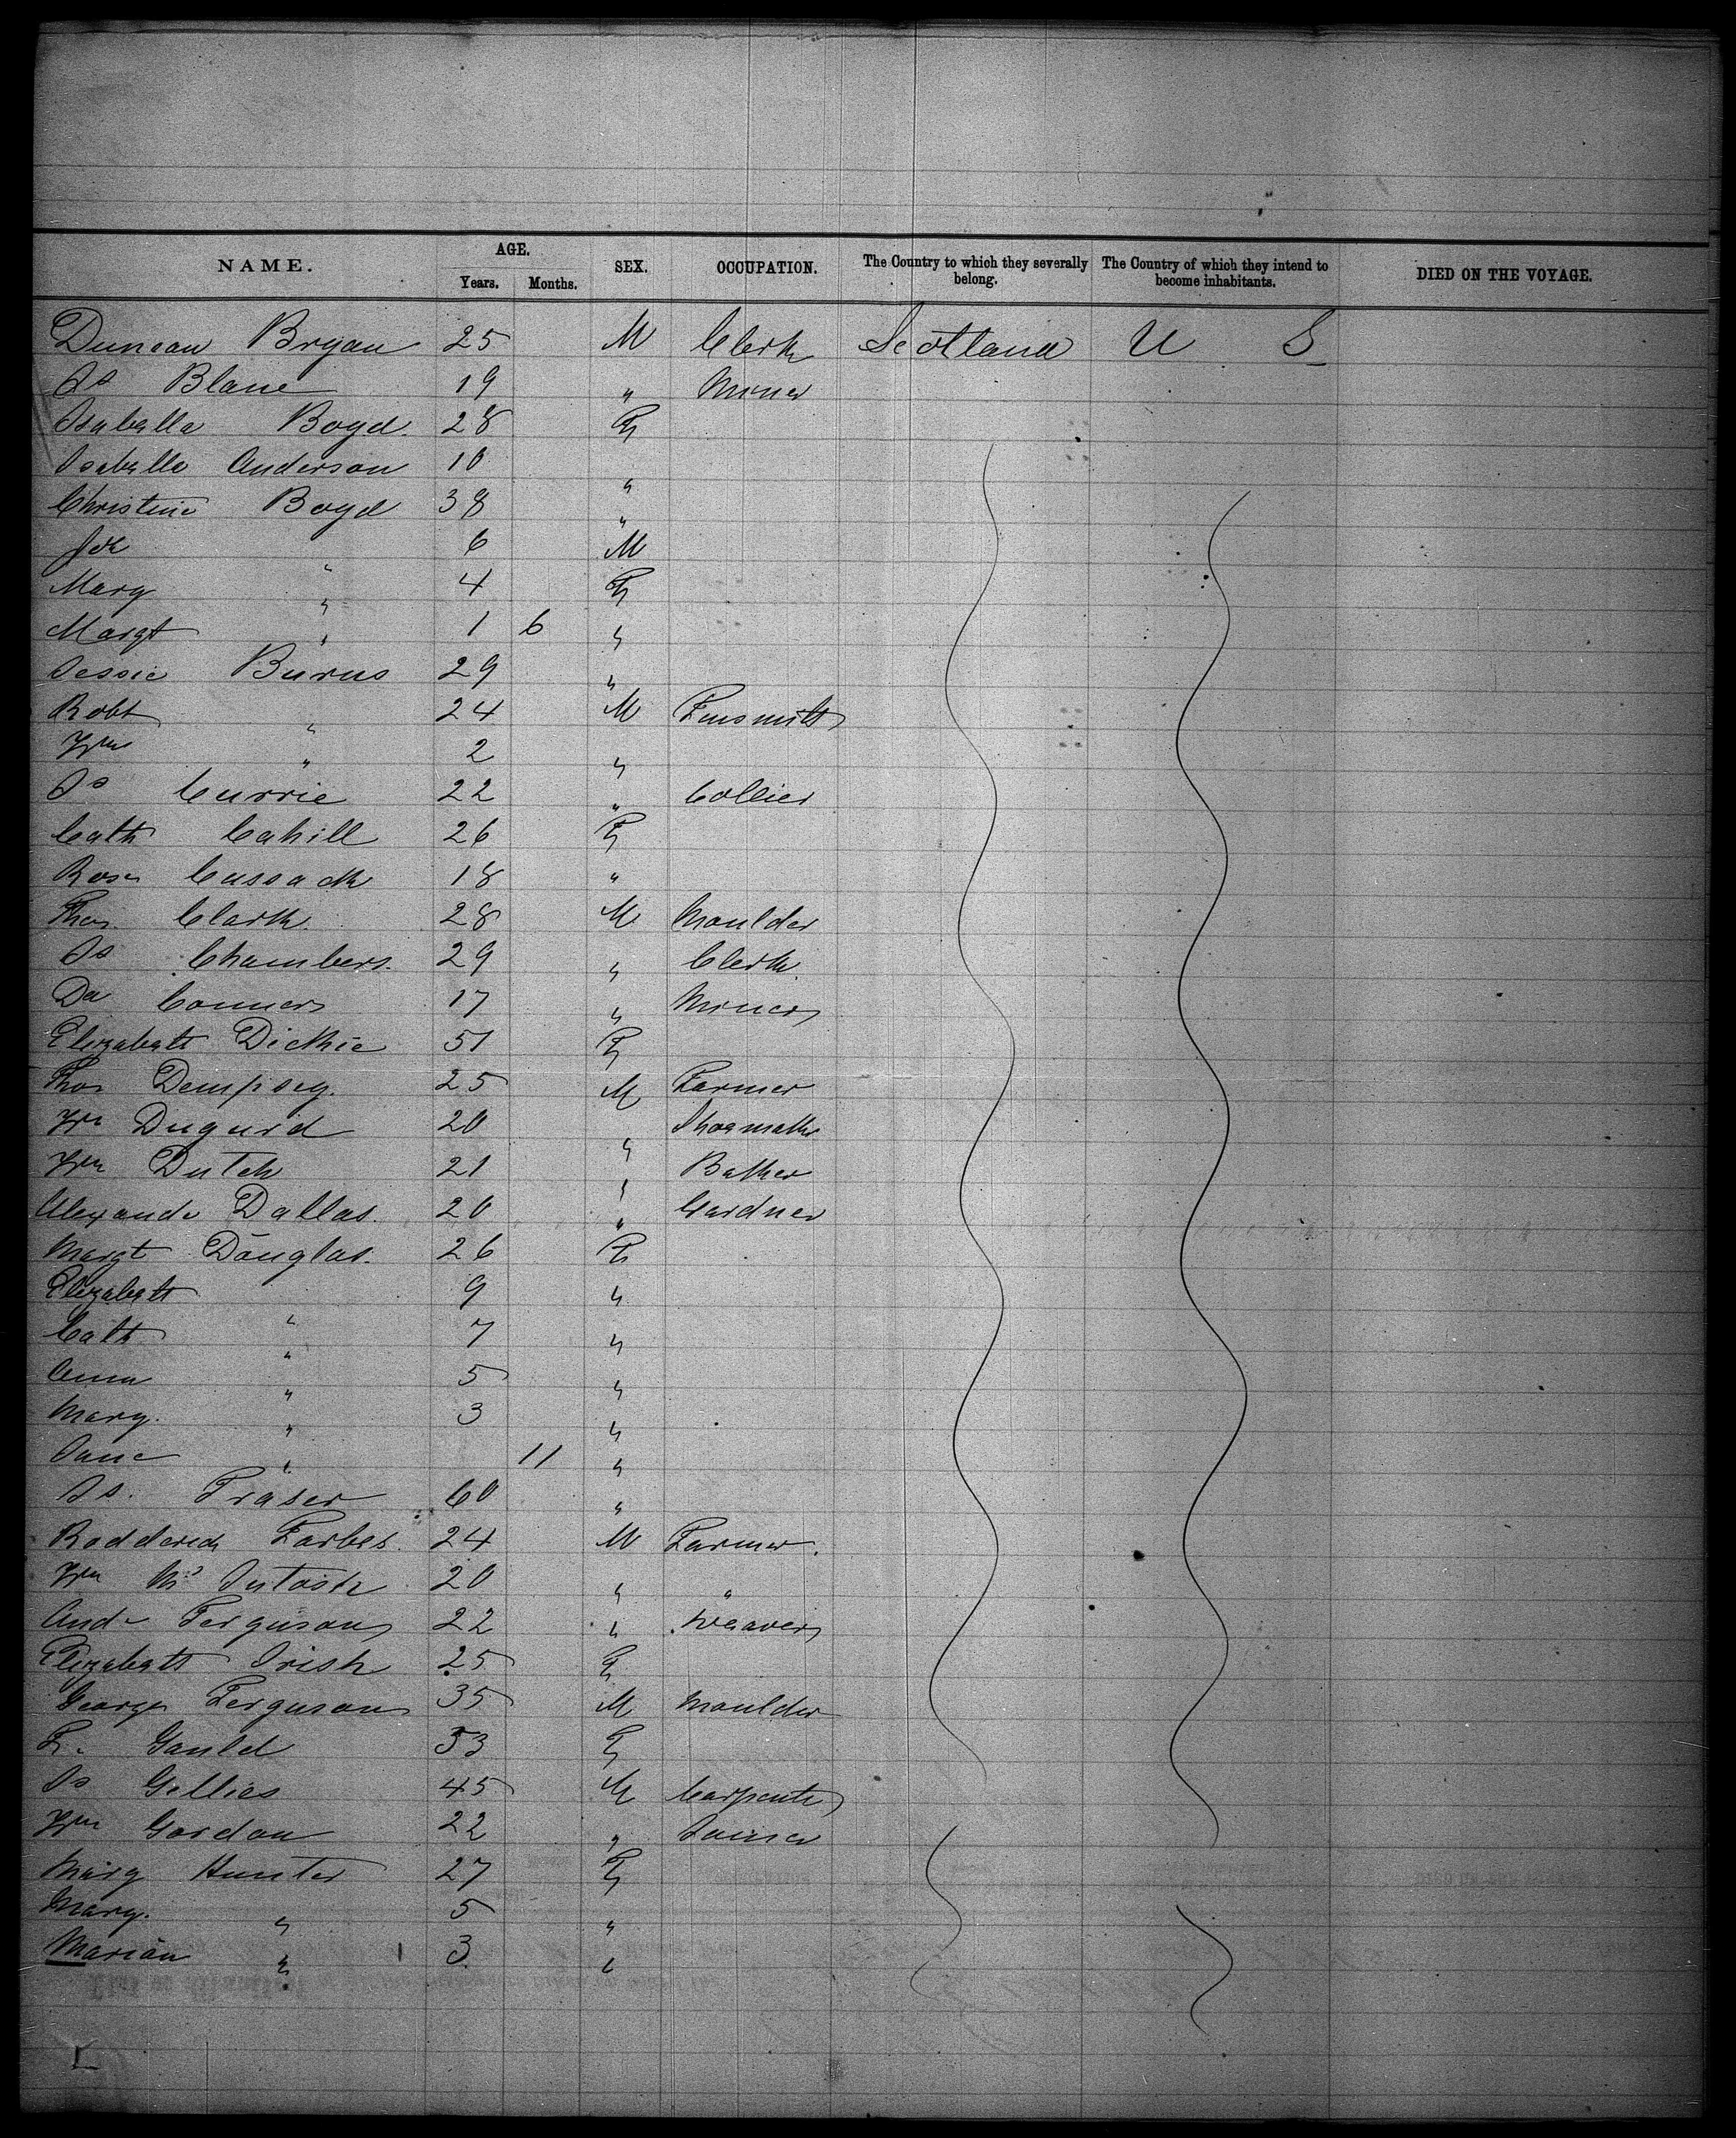 NAME. AGE. SEX. OCCUPATION. The Country to which they severally belong. The Country of which they intend to become inhabitants. DIED ON THE VOYAGE.
Years. Months.
Duncan Bryan 25 M Clerk Scotland U S
Js Blane 19 " Miner
Isabella Boyd. 28 F
Isabella Anderson 10 "
Christine Boyd 38 "
Jn " 6 M
Mary " 4 F
Margt " 1 6 "
Jessie Burns 29 "
Robt " 24 M Tinsmith
Wm " 2 "
Js Currie 22 " Collier
Cath Cahill 26 F
Rose Cussack 18 "
Thos. Clark. 28 M Moulder
Js Chambers. 29 " Clerk.
Da Conner 17 " Miner
Elizabeth Dickie 51 F
Thos Dempsey. 25 M Farmer
Wm Duguid 20 " Shoemaker
Wm Dutch 21 " Baker
Alexande Dallas. 20 " Gardner
Margt Douglas. 26 F
Elizabeth " 9 "
Cath " 7 "
Ann " 5 "
Mary. " 3 "
Jane " 11 "
Js. Fraser 60 "
Rodderick Forbes. 24 M Farmer.
Wm McIntosh 20 " "
Andw Ferguson 22 " Weaver
Elizabeth Irish 25 F
George Ferguson 35 M Moulder
Gauld 53 F
Js Gillies 45 M Carpenter
Wm Gordon 22 " Joiner
Mary Hunter 27 F
Mary. " 5 "
Marian " 3 "